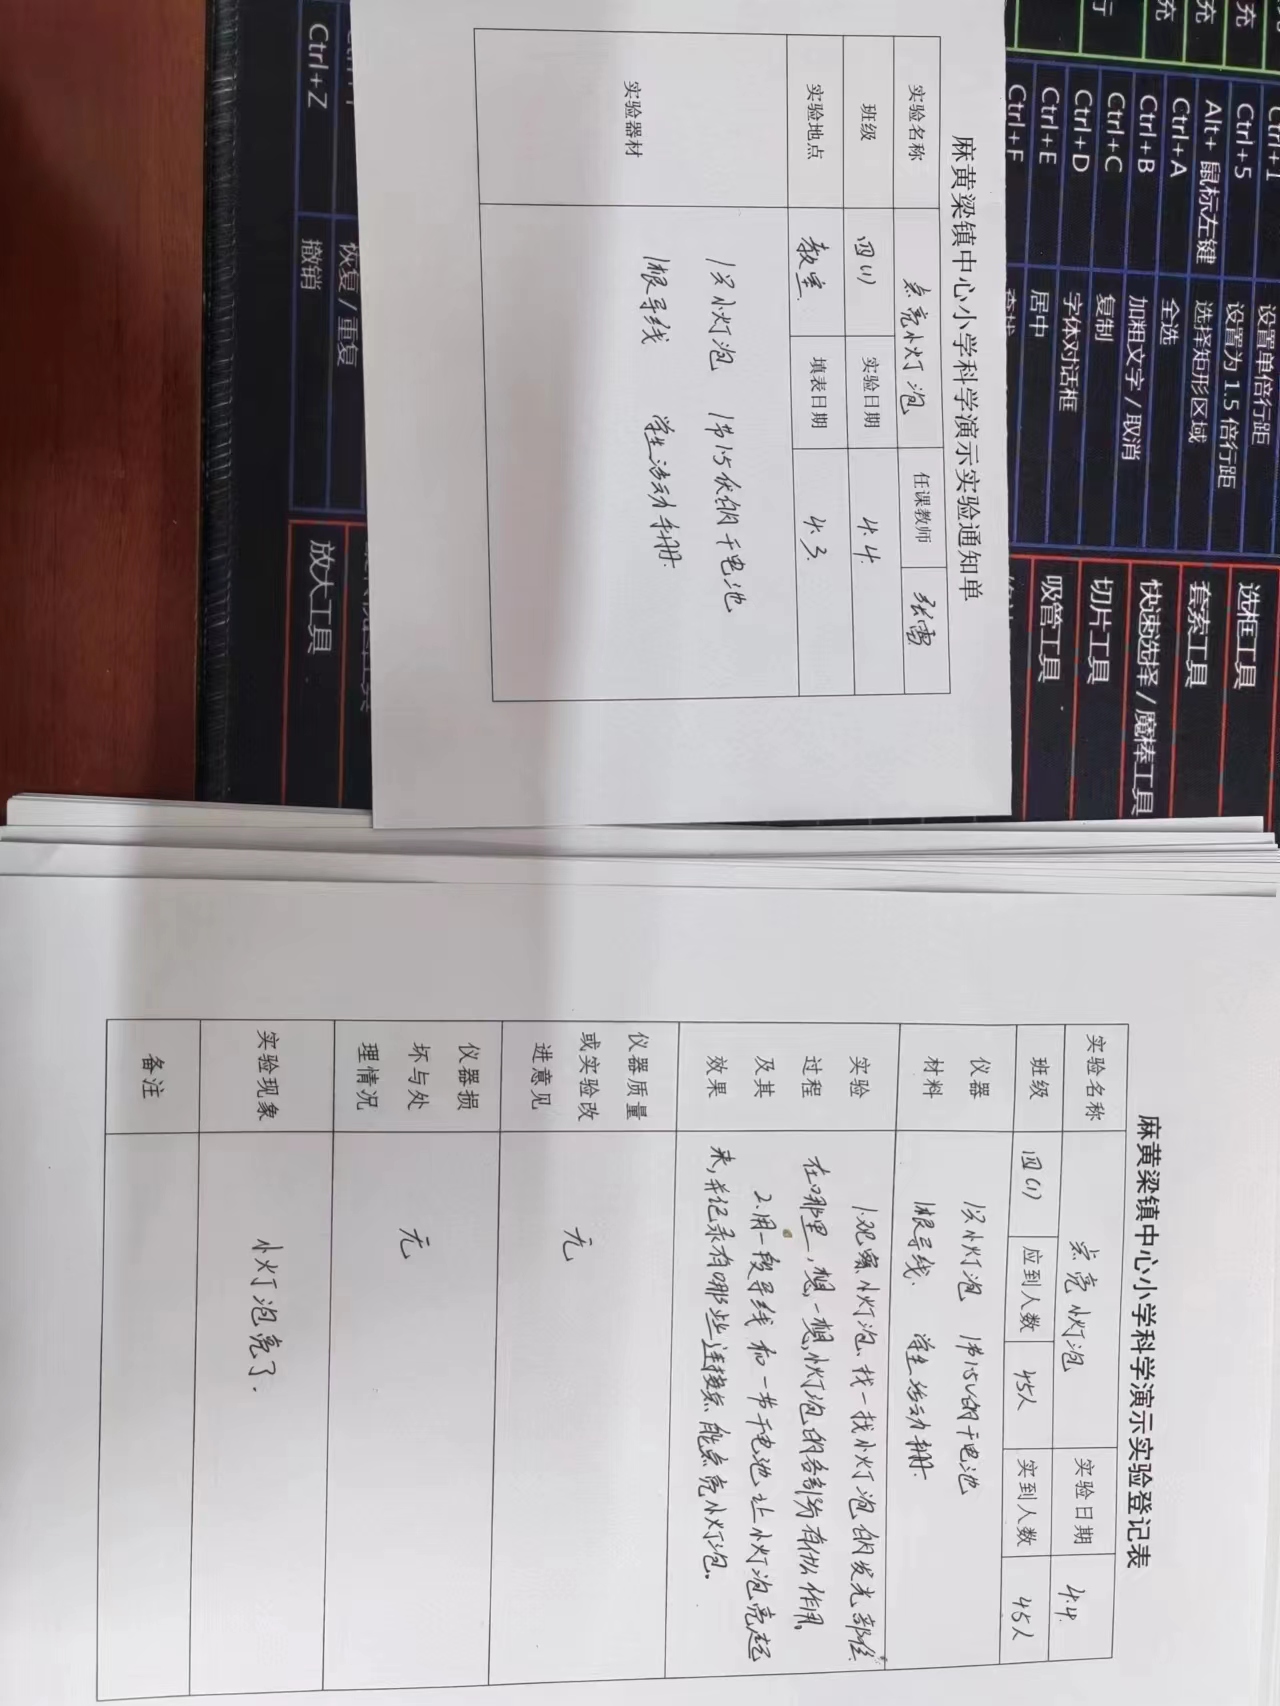 麻黄梁镇中心小学科学演示实验通知单
实验名称 点亮小灯泡 任课教师 张雷
班级 四(1) 实验日期 4.4
实验地点 教室 填表日期 4.3
实验器材
1只小灯泡 1节1.5伏的干电池
1根导线 学生活动手册
麻黄梁镇中心小学科学演示实验登记表
实验名称 点亮小灯泡 实验日期 4.4
班级 四(1) 应到人数 45人 实到人数 45人
仪器材料
1只小灯泡 1节1.5V的干电池
1根导线 学生活动手册
实验过程及其效果
1.观察小灯泡、找一找小灯泡的发光部位
在哪里,想一想,小灯泡的各部分有什么作用。
2.用一段导线和一节干电池让小灯泡亮起
来,并记录有哪些连接点能点亮小灯泡。
仪器质量或实验改进意见 无
仪器损坏与处理情况 无
实验现象 小灯泡亮了.
备注
Ctrl+1 设置单倍行距
Ctrl+5 设置为 1.5 倍行距
Alt+ 鼠标左键 选择矩形区域
Ctrl+A 全选
Ctrl+B 加粗文字 / 取消
Ctrl+C 复制
Ctrl+D 字体对话框
Ctrl+E 居中
Ctrl+F 查找
选框工具
套索工具
快速选择 / 魔棒工具
切片工具
吸管工具
恢复 / 重复
Ctrl+Z 撤销
放大工具